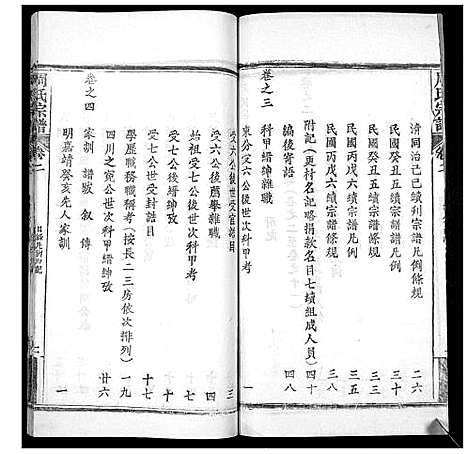 周氏宗譜
清同治己巳續刋宗譜凡例條規 二六
民國癸丑五續宗譜凡例 三三
民國癸丑五續宗譜條規 三五
民國丙戌六續宗譜凡例 三五
民國丙戌六續宗譜條規 三八
附記（更村名記略捐款名目七續組成人員） 四十
編後寄語 四八
卷之三
科甲縉紳雜職
東分定六公後世科甲考 一
受六公後世受官銜 三
受六公後薦擧雜職 四
始祖受七公後世科甲考 十四
受七公後縉紳攷 十七
受七公世受封誥目 十七
學歷職務職稱考（按長二三房依次排列） 一九
四川之寛公世科甲縉紳攷 廿六
卷之四
家訓 譜驗 叙 傳
明嘉靖癸亥先人家訓 一
周氏宗譜 卷一
七